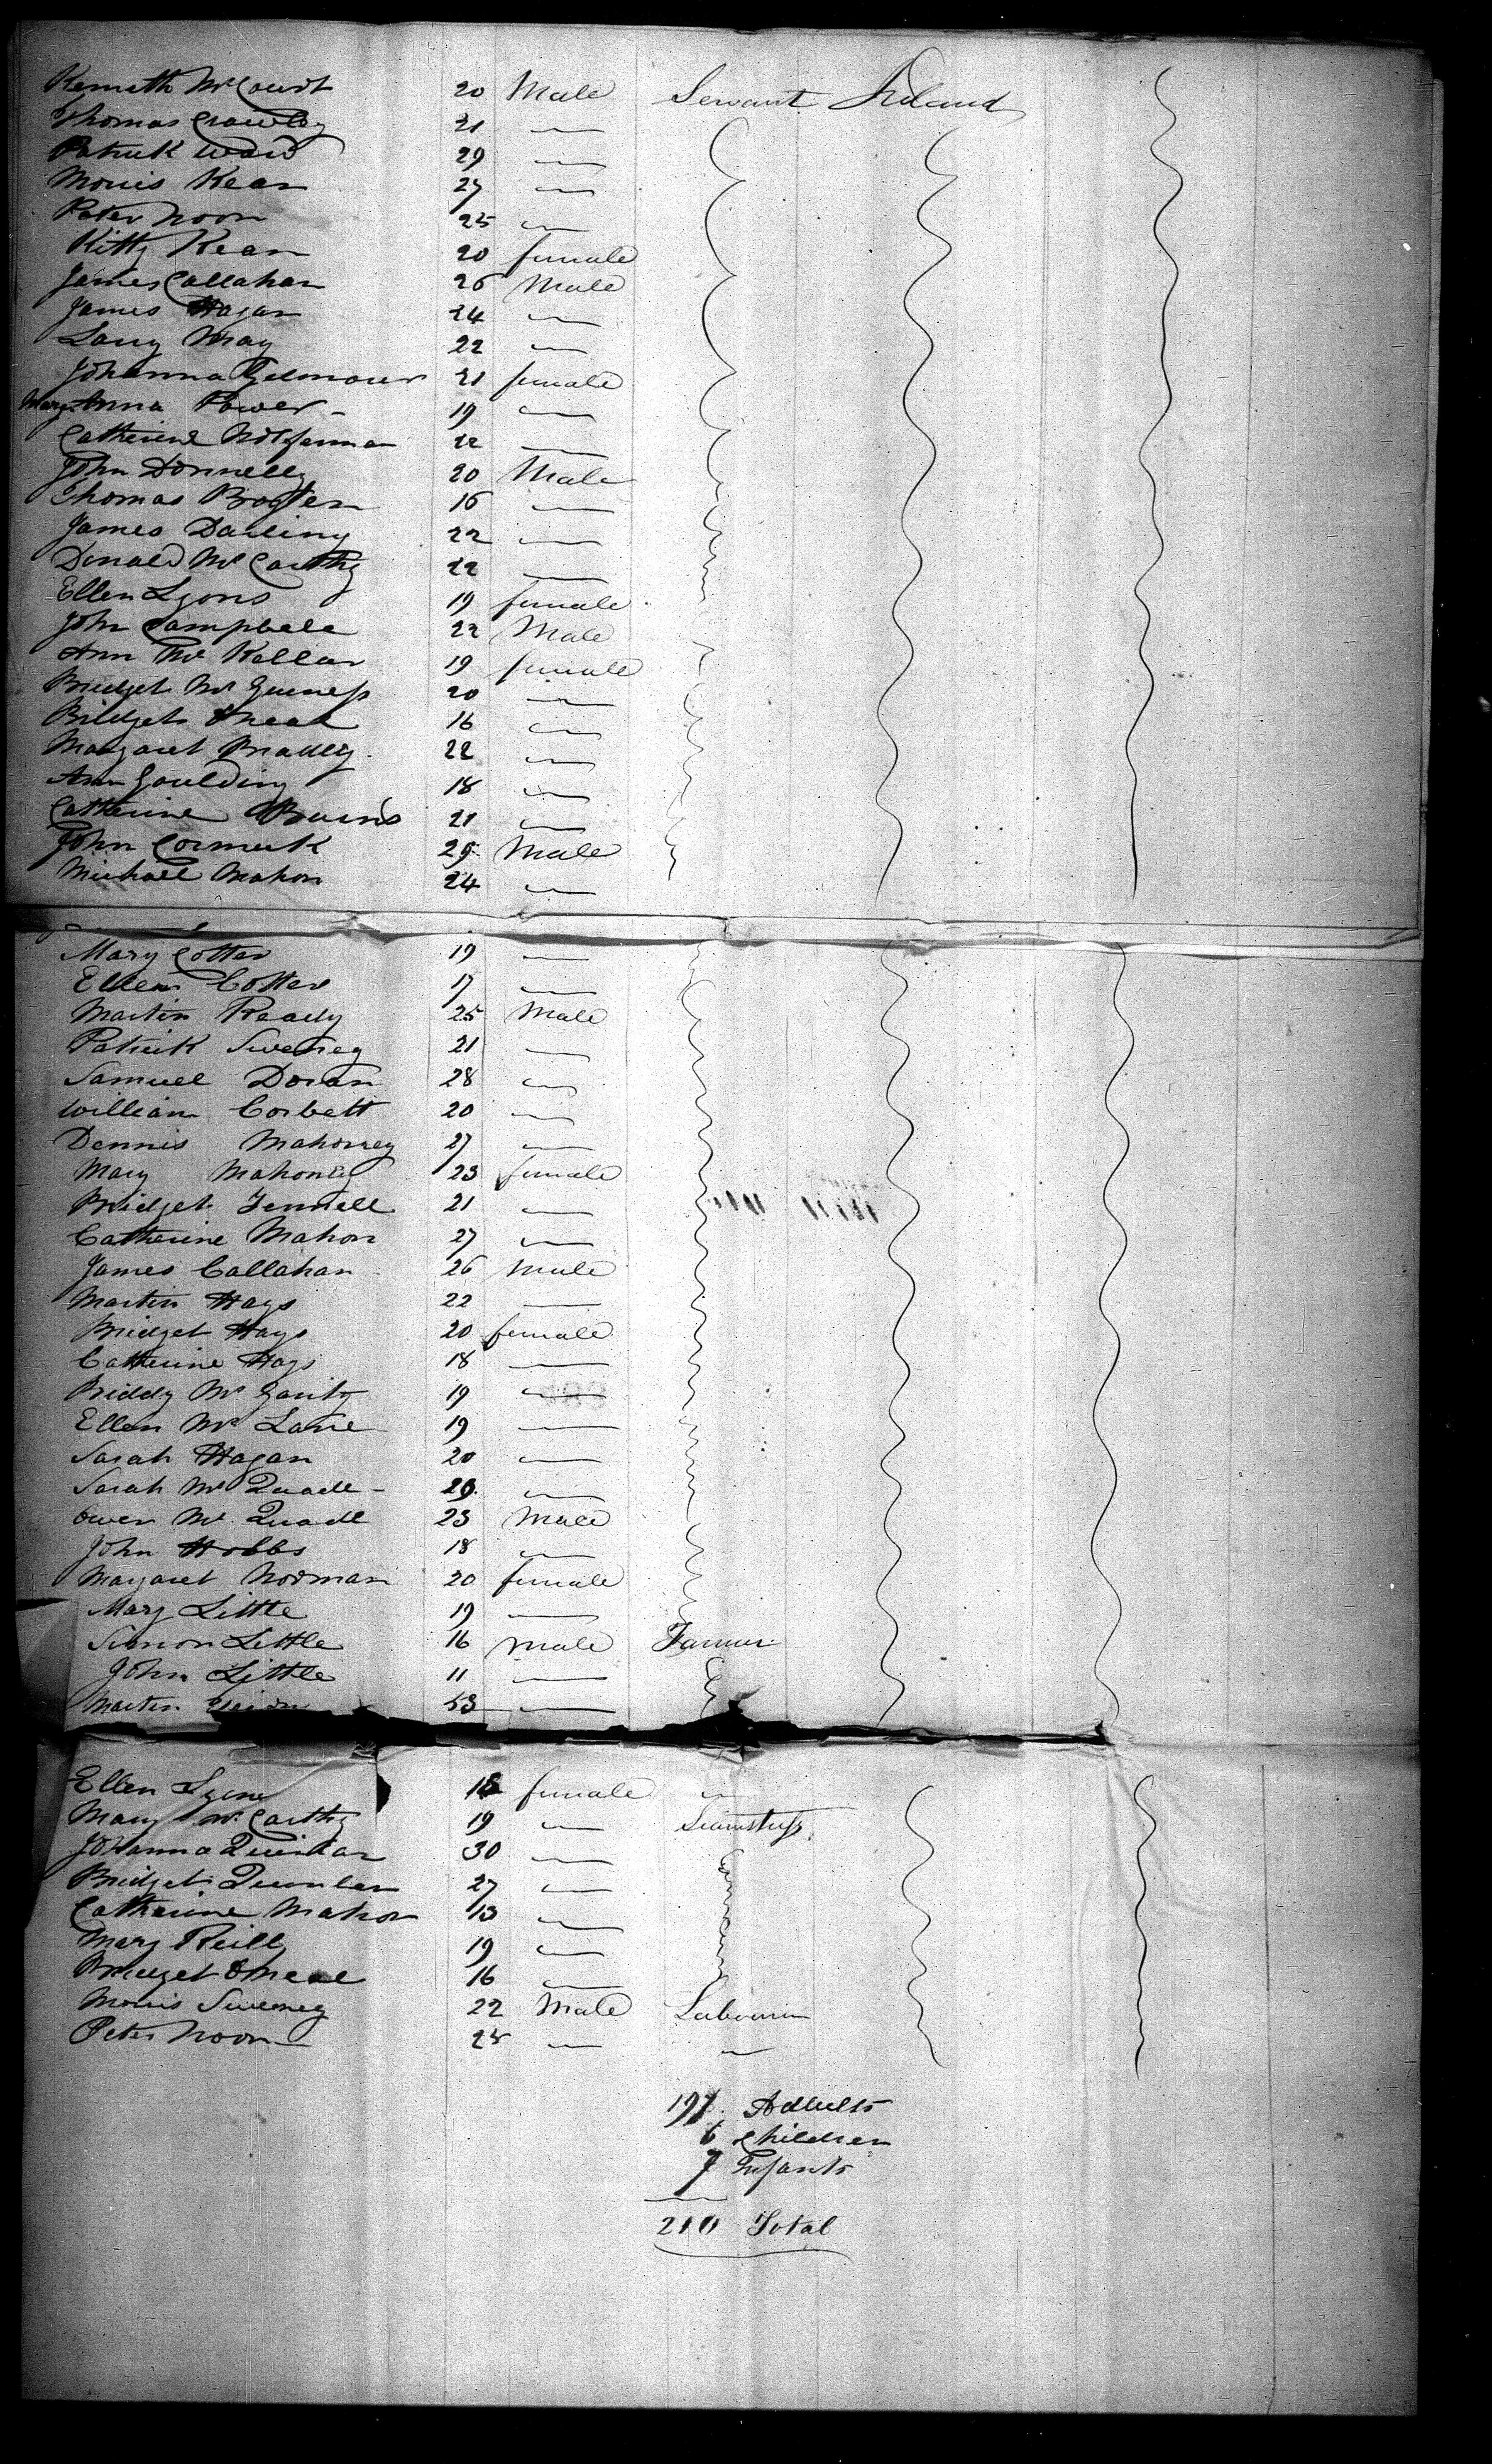 Kenneth McCourt 20 Male Servant Ireland
Thomas Crawley 21 —
Patrick Ward 29 —
Morris Kean 27 —
Peter Noon 25 —
Kitty Kean 20 female
James Callahan 26 Male
James Hagan 24 —
Larry May 22 —
Johanna Gilmour 21 female
Mary Anna Power 19 —
Catherine 22 —
John Donnelly 20 Male
Thomas 16 —
James Darling 22 —
Donald McCarthy 22 —
Ellen Lyons 19 female
John Campbele 22 Male
Ann Mc Kellar 19 female
Bridget Mc Guiness 20 —
Bridget ONeal 16 —
Margaret Bradley 22 —
Ann Goulding 18 —
Catherine Burns 21 —
John Cormick 25 Male
Michael Mahon 24 —
Mary Cotter 19 —
Ellen Cotter 17 —
Martin Ready 25 Male
Patrick Sweeney 21 —
Samuel Doran 28 —
William Corbett 20 —
Dennis Mahoney 27 —
Mary Mahoney 23 female
Bridget Fennell 21 —
Catherine Mahon 27 —
James Callahan 26 Male
Martin Hays 22 —
Bridget Hays 20 female
Catherine Hays 18 —
Biddy Mc Garity 19 —
Ellen Mc Lane 19 —
Sarah Hagan 20 —
Sarah Mc Quade 29 —
Owen Mc Quade 23 Male
John Hobbs 18 —
Margaret Norman 20 female
Mary Little 19 —
Simon Little 16 Male Farmer
John Little 11 —
Martin 53 —
Ellen Lyons 18 female —
Mary McCarthy 19 — Seamstress
Johanna Quinlan 30 —
Bridget Quinlan 27 —
Catherine Mahon 13 —
Mary Reilly 19 —
Bridget ONeal 16 —
Morris Sweeney 22 Male Labourer
Peter Noon 25 — —
197 Adults
6 Children
7 Infants
210 Total